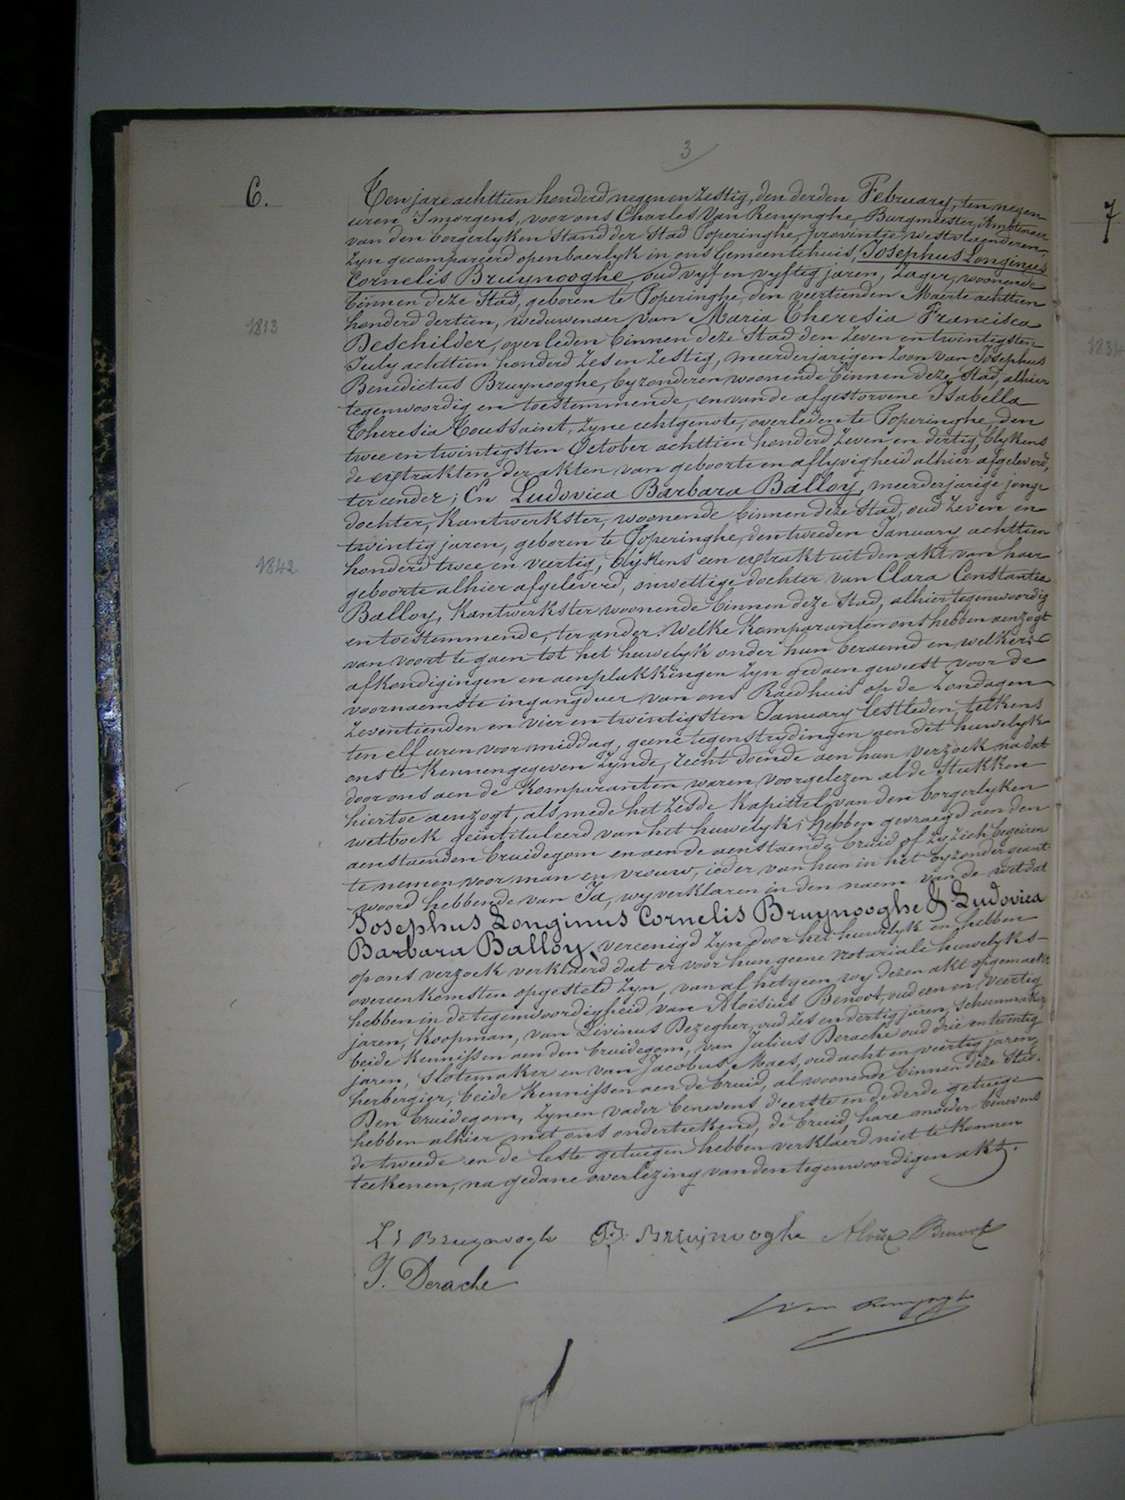 3
6.
7
1813
1842
183
Ten jare achttien honderd negen en zestig, den derden February, ten negen
uren 's morgens, voor ons Charles Van Renynghe, Burgmeester, Ambtenaer
van den borgerlyken Stand der Stad Poperinghe, provintie Westvlaenderen,
zyn gecompareerd openbaerlyk in ons Gemeentehuis, Josephus Longinus
Cornelis Bruynooghe, oud vyf en vyftig jaren, Zager, woonende
binnen deze Stad, geboren te Poperinghe, den veertienden Maerte achttien
honderd dertien, weduwenaer van Maria Theresia Francisca
Deschilder, overleden binnen deze Stad den zeven en twintigsten
July achttien honderd zes en zestig, meerderjarigen zoon van Josephus
Benedictus Bruynooghe, byzonderen woonende binnen deze Stad, alhier
tegenwoordig en toestemmende, en van de afgestorvene Isabella
Theresia Toussaint, zyne echtgenote, overleden te Poperinghe, den
twee en twintigsten October achttien honderd zeven en dertig, blykens
de extrakten der akten van geboorte en aflyvigheid alhier afgeleverd,
ter eender; En Ludovica Barbara Balloy, meerderjarige jonge
dochter, Kantwerkster, woonende binnen deze Stad, oud zeven en
twintig jaren, geboren te Poperinghe, den tweeden January achttien
honderd twee en veertig, blykens een extrakt uit den akt van haer
geboorte alhier afgeleverd, onwettige dochter van Clara Constantia
Balloy, Kantwerkster woonende binnen deze Stad, alhier tegenwoordig
en toestemmende, ter ander. Welke Komparanten ons hebben aenzogt
van voort te gaen tot het huwelyk onder hun beraemd en welkers
afkondigingen en aenplakkingen zyn gedaen geweest voor de
voornaemste ingangdeur van ons Raedhuis op de Zondagen
zeventienden en vier en twintigsten January lestleden, telkens
ten elf uren voormiddag, geene tegenstrydingen aen dit huwelyk
ons te kennen gegeven zynde, recht doende aen hun verzoek na dat
door ons aen de Komparanten waren voorgelezen al de stukken
hiertoe aenzogt, als mede het zesde Kapittel van den borgerlyken
wetboek geïntituleerd van het huwelyk; hebben gevraegd aen den
aenstaenden bruidegom en aen de aenstaende bruid of zy zich begeiren
te nemen voor man en vrouw, ieder van hun in het byzonder geant
woord hebbende van Ja, wy verklaren in den naem van de wet dat
Josephus Longinus Cornelis Bruynooghe & Ludovica
Barbara Balloy, vereenigd zyn door het huwelyk en hebben
op ons verzoek verklaerd dat er voor hun geene notariale huwelyks-
overeenkomsten opgesteld zyn, van al hetgeen wy dezen akt opgemaekt
hebben in de tegenwoordigheid van Aloïsius Benoot, oud een en veertig
jaren, Koopman, van Livinus Dezegher, oud zes en dertig jaren, Schoenmaker
beide Kennissen aen den bruidegom, van Julius Derache oud drie en twintig
jaren, Slotemaker en van Jacobus Maes, oud acht en veertig jaren,
herbergier, beide Kennissen aen de bruid, al woonende binnen deze Stad.
Den bruidegom, zynen vader benevens d'eerste en de derde getuige
hebben alhier met ons onderteekend, de bruid, hare moeder benevens
de tweede en de leste getuigen hebben verklaerd niet te konnen
teekenen, na gedane overlezing van den tegenwoordigen akt.
Bruynoogh B. Bruynooghe Aloïs Benoot
J. Derache
Van Renynghe